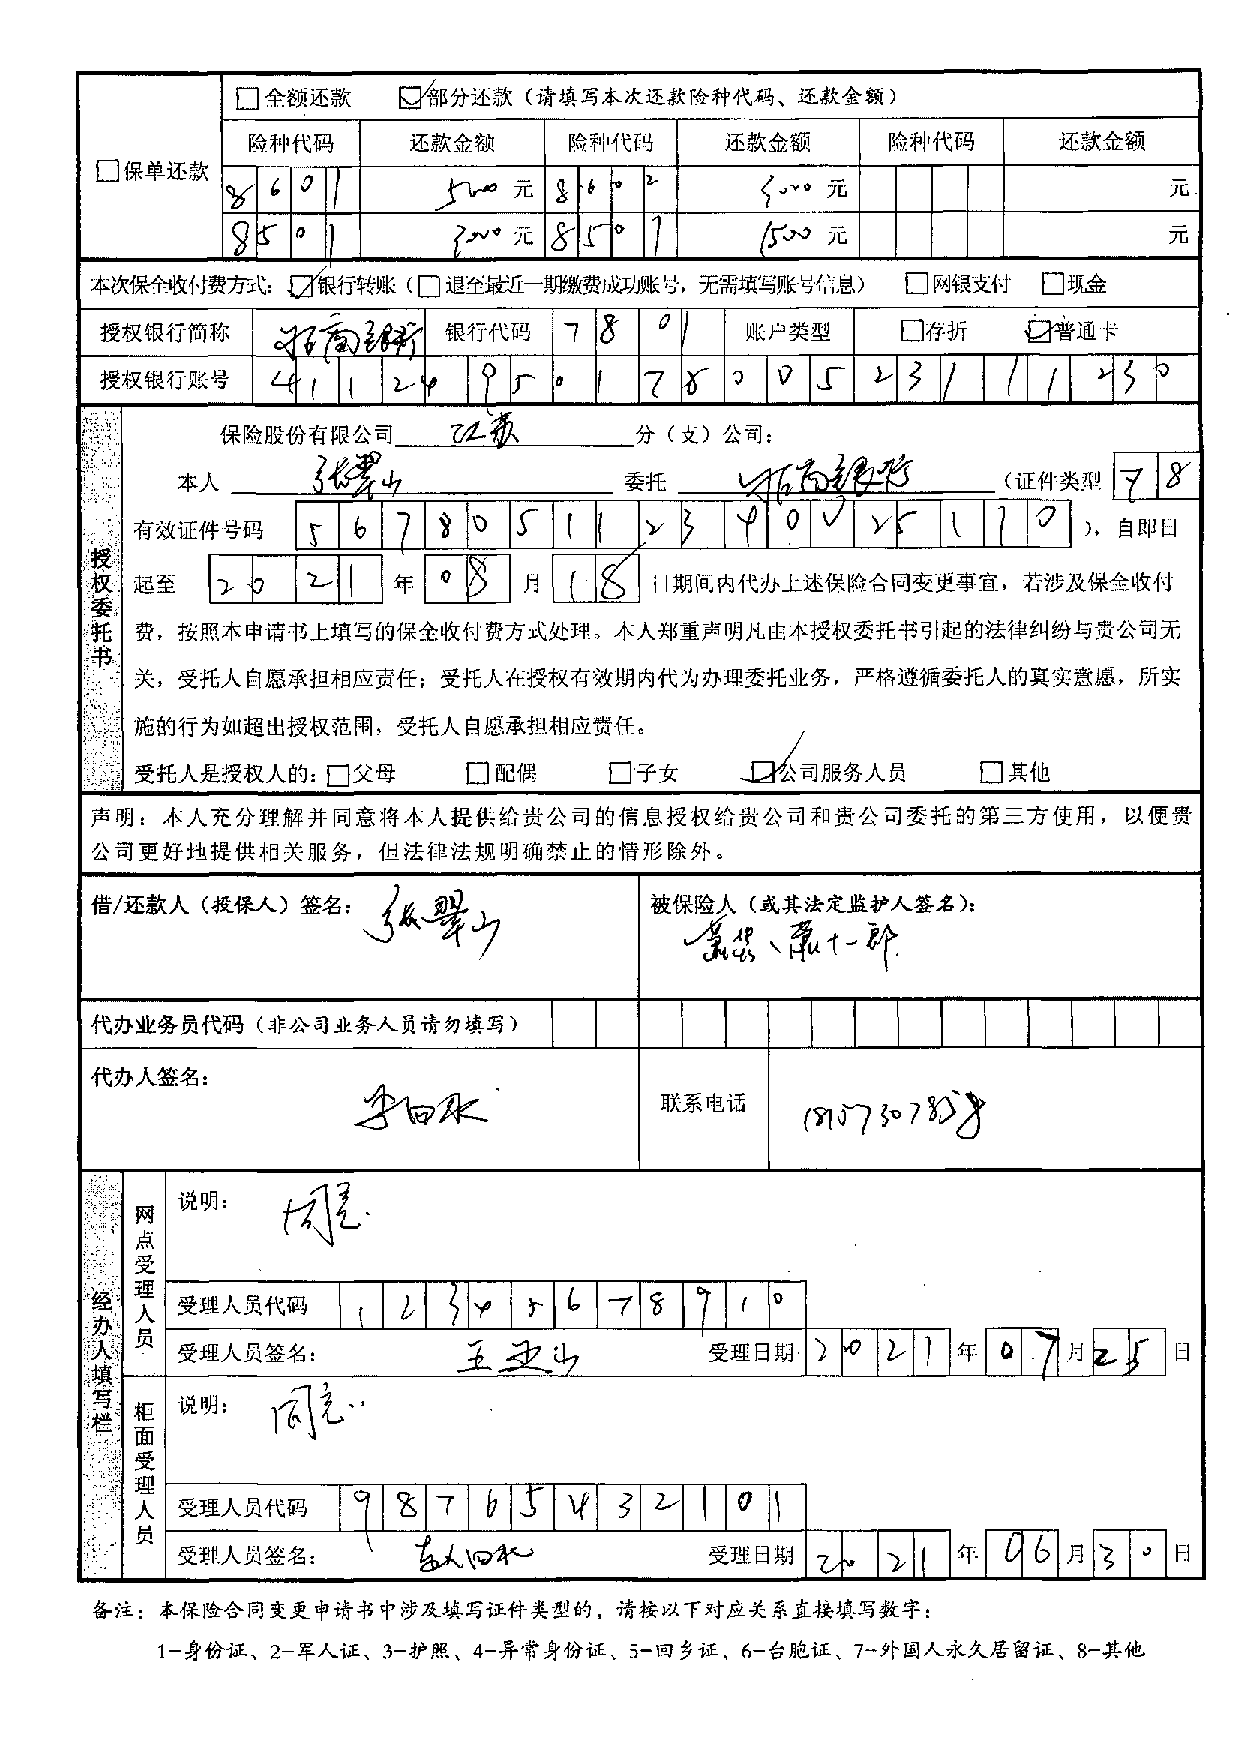 全额还款 部分还款（请填写本次还款险种代码、还款金额）
保单还款
险种代码 还款金额 险种代码 还款金额 险种代码 还款金额
8601 5000 元 8602 3000 元 元
8501 2000 元 8507 1500 元 元
本次保全收付费方式： 银行转账（ 退至最近一期缴费成功账号，无需填写账号信息） 网银支付 现金
授权银行简称 招商银行 银行代码 7801 账户类型 存折 普通卡
授权银行账号 4112495017800523111230
授权委托书
保险股份有限公司 江苏 分（支）公司：
本人 张翠山 委托 招商银行 （证件类型 78
有效证件号码 567805112340025110 ），自即日
起至 2021 年 08 月 18 日期间内代办上述保险合同变更事宜，若涉及保全收付
费，按照本申请书上填写的保全收付费方式处理。本人郑重声明凡由本授权委托书引起的法律纠纷与贵公司无
关，受托人自愿承担相应责任；受托人在授权有效期内代为办理委托业务，严格遵循委托人的真实意愿，所实
施的行为如超出授权范围，受托人自愿承担相应责任。
受托人是授权人的： 父母 配偶 子女 公司服务人员 其他
声明：本人充分理解并同意将本人提供给贵公司的信息授权给贵公司和贵公司委托的第三方使用，以便贵
公司更好地提供相关服务，但法律法规明确禁止的情形除外。
借/还款人（投保人）签名： 张翠山 被保险人（或其法定监护人签名）：
、萧十一郎
代办业务员代码（非公司业务人员请勿填写）
代办人签名： 李白水 联系电话 18157307858
经办人填写栏
网点受理人员
说明： 同意.
受理人员代码 12345678910
受理人员签名： 王亚山 受理日期 2021 年 07 月 25 日
柜面受理人员
说明： 同意..
受理人员代码 98765432101
受理人员签名： 受理日期 2021 年 06 月 30 日
备注：本保险合同变更申请书中涉及填写证件类型的，请按以下对应关系直接填写数字：
1-身份证、2-军人证、3-护照、4-异常身份证、5-回乡证、6-台胞证、7-外国人永久居留证、8-其他